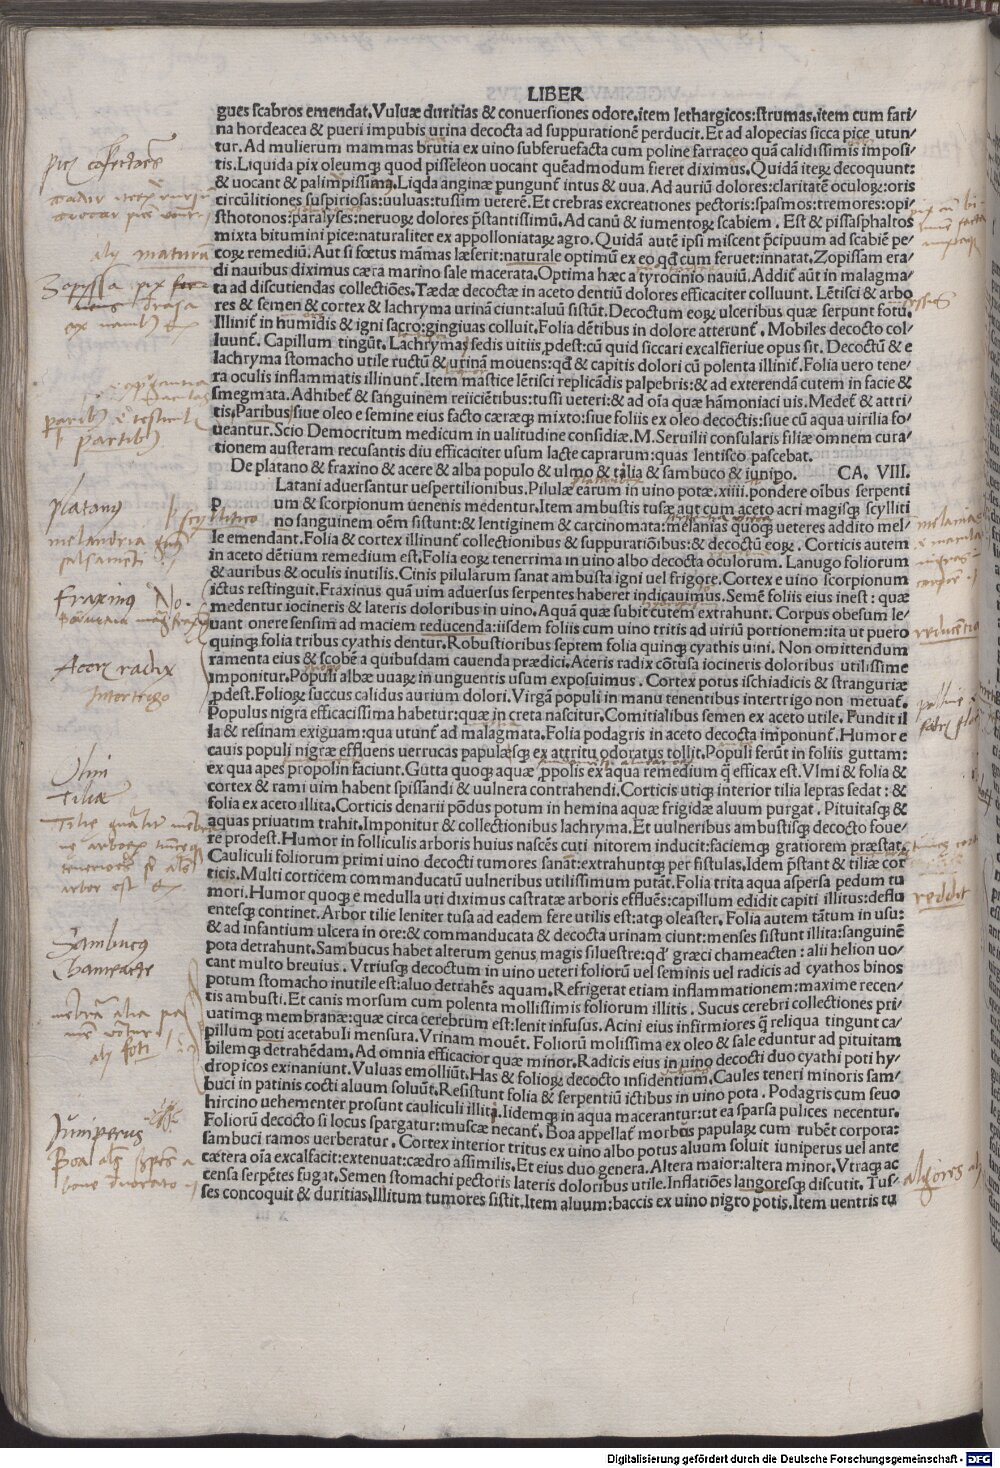 LIBER
gues scabros emendat. Vuluæ duritias & conuersiones odore. item lethargicos: strumas. item cum fari/
na hordeacea & pueri impubis urina decocta ad suppurationē perducit. Et ad alopecias sicca pice utun/
tur. Ad mulierum mammas brutia ex uino subferuefacta cum poline farraceo quā calidissimis imposi/
tis. Liquida pix oleumq; quod pisseleon uocant quēadmodum fieret diximus. Quidā iteꝝ decoquunt:
& uocant & palimpissimą. Liqda anginæ pungunt̄ intus & uua. Ad auriū dolores: claritatē oculoꝝ: oris
circūlitiones suspiriosas: uuluas: tussim ueterē. Et crebras excreationes pectoris: spasmos: tremores: opi/
sthotonos: paralyses: neruoꝝ dolores p̄stantissimū. Ad canū & iumentoꝝ scabiem. Est & pissasphaltos
mixta bitumini pice: naturaliter ex appolloniataꝝ agro. Quidā autē ipsi miscent p̄cipuum ad scabiē pe/
coꝝ remediū. Aut si fœtus mām̄as læserit: naturale optimū ex eo qd̄ cum feruet: innatat. Zopissam era/
di nauibus diximus cæra marino sale macerata. Optima hæc a tyrocinio nauiū. Addit̄ aūt in malagma/
ta ad discutiendas collectiōes. Tædæ decoctæ in aceto dentiū dolores efficaciter colluunt. Lētisci & arbo
res & semen & cortex & lachryma urinā ciunt: aluū sistūt. Decoctum eoꝝ ulceribus quæ serpunt fotu.
Illinit̄ in humidis & igni sacro: gingiuas colluit. Folia dētibus in dolore atterunt̄. Mobiles decocto col/
luunt̄. Capillum tingūt. Lachrymaʃ sedis uitiis ꝓdest: cū quid siccari excalfieriue opus sit. Decoctū & e
lachryma stomacho utile ructū & urinā mouens: qd̄ & capitis dolori cū polenta illinit̄. Folia uero tene/
ra oculis inflammatis illinunt̄. Item mastice lētisci replicādis palpebris: & ad extendendā cutem in facie &
smegmata. Adhibet̄ & sanguinem reiiciētibus: tussi ueteri: & ad oīa quæ hāmoniaci uis. Medet̄ & attri/
tis. Paribus siue oleo e semine eius facto cæraq; mixto: siue foliis ex oleo decoctis: siue cū aqua uirilia fo/
ueantur. Scio Democritum medicum in ualitudine considiæ. M. Seruilii consularis filiæ omnem cura/
tionem austeram recusantis diu efficaciter usum lacte caprarum: quas lentisco pascebat.
De platano & fraxino & acere & alba populo & ulmo & tilia & sambuco & iunipo. CA. VIII.
p Latani aduersantur uespertilionibus. Pilulæ earum in uino potæ .xiiii. pondere oībus serpenti
um & scorpionum uenenis medentur. Item ambustis tusæ aut cum aceto acri magisq; scylliti
no sanguinem oēm sistunt: & lentiginem & carcinomata: melanias quoq; ueteres addito mel/
le emendant. Folia & cortex illinunt̄ collectionibus & suppuratiōibus: & decoctū eoꝝ. Corticis autem
in aceto dētium remedium est. Folia eoꝝ tenerrima in uino albo decocta oculorum. Lanugo foliorum
& auribus & oculis inutilis. Cinis pilularum sanat ambusta igni uel frigore. Cortex e uino scorpionum
ictus restinguit. Fraxinus quā uim aduersus serpentes haberet indicauimus. Semē foliis eius inest: quæ
medentur iocineris & lateris doloribus in uino. Aquā quæ subit cutem extrahunt. Corpus obesum le/
uant onere sensim ad maciem reducenda: iisdem foliis cum uino tritis ad uiriū portionem: ita ut puero
quinq; folia tribus cyathis dentur. Robustioribus septem folia quinq; cyathis uini. Non omittendum
ramenta eius & scobē a quibusdam cauenda prædici. Aceris radix cōtusa iocineris doloribus utilissime
imponitur. Populi albæ uuaꝝ in unguentis usum exposuimus. Cortex potus ischiadicis & stranguriæ
ꝓdest. Folioꝝ succus calidus aurium dolori. Virgā populi in manu tenentibus intertrigo non metuat̄.
Populus nigra efficacissima habetur: quæ in creta nascitur. Comitialibus semen ex aceto utile. Fundit il
la & resinam exiguam: qua utunt̄ ad malagmata. Folia podagris in aceto decocta imponunt̄. Humor e
cauis populi nigræ effluens uerrucas papulasq; ex attritu odoratus tollit. Populi ferūt in foliis guttam:
ex qua apes propolin faciunt. Gutta quoq; aquæ ꝓpolis ex aqua remedium q̄ efficax est. Vlmi & folia &
cortex & rami uim habent spissandi & uulnera contrahendi. Corticis utiq; interior tilia lepras sedat: &
folia ex aceto illita. Corticis denarii pōdus potum in hemina aquæ frigidæ aluum purgat. Pituitasq; &
aquas priuatim trahit. Imponitur & collectionibus lachryma. Et uulneribus ambustisq; decocto foue/
re prodest. Humor in folliculis arboris huius nascēs cuti nitorem inducit: faciemq; gratiorem præstat.
Cauliculi foliorum primi uino decocti tumores sanāt: extrahuntq; per fistulas. Idem p̄stant & tiliæ cor
ticis. Multi corticem commanducatū uulneribus utilissimum putāt. Folia trita aqua aspersa pedum tu
mori. Humor quoq; e medulla uti diximus castratæ arboris effluēs: capillum edidit capiti illitus: deflu
entesq; continet. Arbor tilie leniter tusa ad eadem fere utilis est: atq; oleaster. Folia autem tātum in usu:
& ad infantium ulcera in ore: & commanducata & decocta urinam ciunt: menses sistunt illita: sanguinē
pota detrahunt. Sambucus habet alterum genus magis siluestre: qd' græci chameacten: alii helion uo/
cant multo breuius. Vtriusq; decoctum in uino ueteri foliorū uel seminis uel radicis ad cyathos binos
potum stomacho inutile est: aluo detrahēs aquam. Refrigerat etiam inflammationem: maxime recen/
tis ambusti. Et canis morsum cum polenta mollissimis foliorum illitis. Sucus cerebri collectiones pri/
uatimq; membranæ: quæ circa cerebrum est: lenit infusus. Acini eius infirmiores q̄ reliqua tingunt ca/
pillum poti acetabuli mensura. Vrinam mouēt. Foliorū molissima ex oleo & sale eduntur ad pituitam
bilemq; detrahēdam. Ad omnia efficacior quæ minor. Radicis eius in uino decocti duo cyathi poti hy/
dropicos exinaniunt. Vuluas emolliūt. Has & folioꝝ decocto insidentium. Caules teneri minoris sam/
buci in patinis cocti aluum soluūt. Resistunt folia & serpentiū ictibus in uino pota. Podagris cum seuo
hircino uehementer prosunt cauliculi illiti. Iidemq; in aqua macerantur: ut ea sparsa pulices necentur.
Foliorū decocto si locus spargatur: muscæ necant̄. Boa appellat̄ morbus papulaꝝ cum rubēt corpora:
sambuci ramos uerberatur. Cortex interior tritus ex uino albo potus aluum soluit iuniperus uel ante
cætera oīa excalfacit: extenuat: cædro assimilis. Et eius duo genera. Altera maior: altera minor. Vtraq; ac
censa serpētes fugat. Semen stomachi pectoris lateris doloribus utile. Inflatiōes langoresq; discutit. Tus/
ses concoquit & duritias. Illitum tumores sistit. Item aluum: baccis ex uino nigro potis. Item uentris tu
platanus
Fraxinus No.
Acer radix
Intertrigo
Ulmi
Tilia
Sambucus
Chameacte
Juniperus
reddit
algores
Digitalisierung gefördert durch die Deutsche Forschungsgemeinschaft - DFG